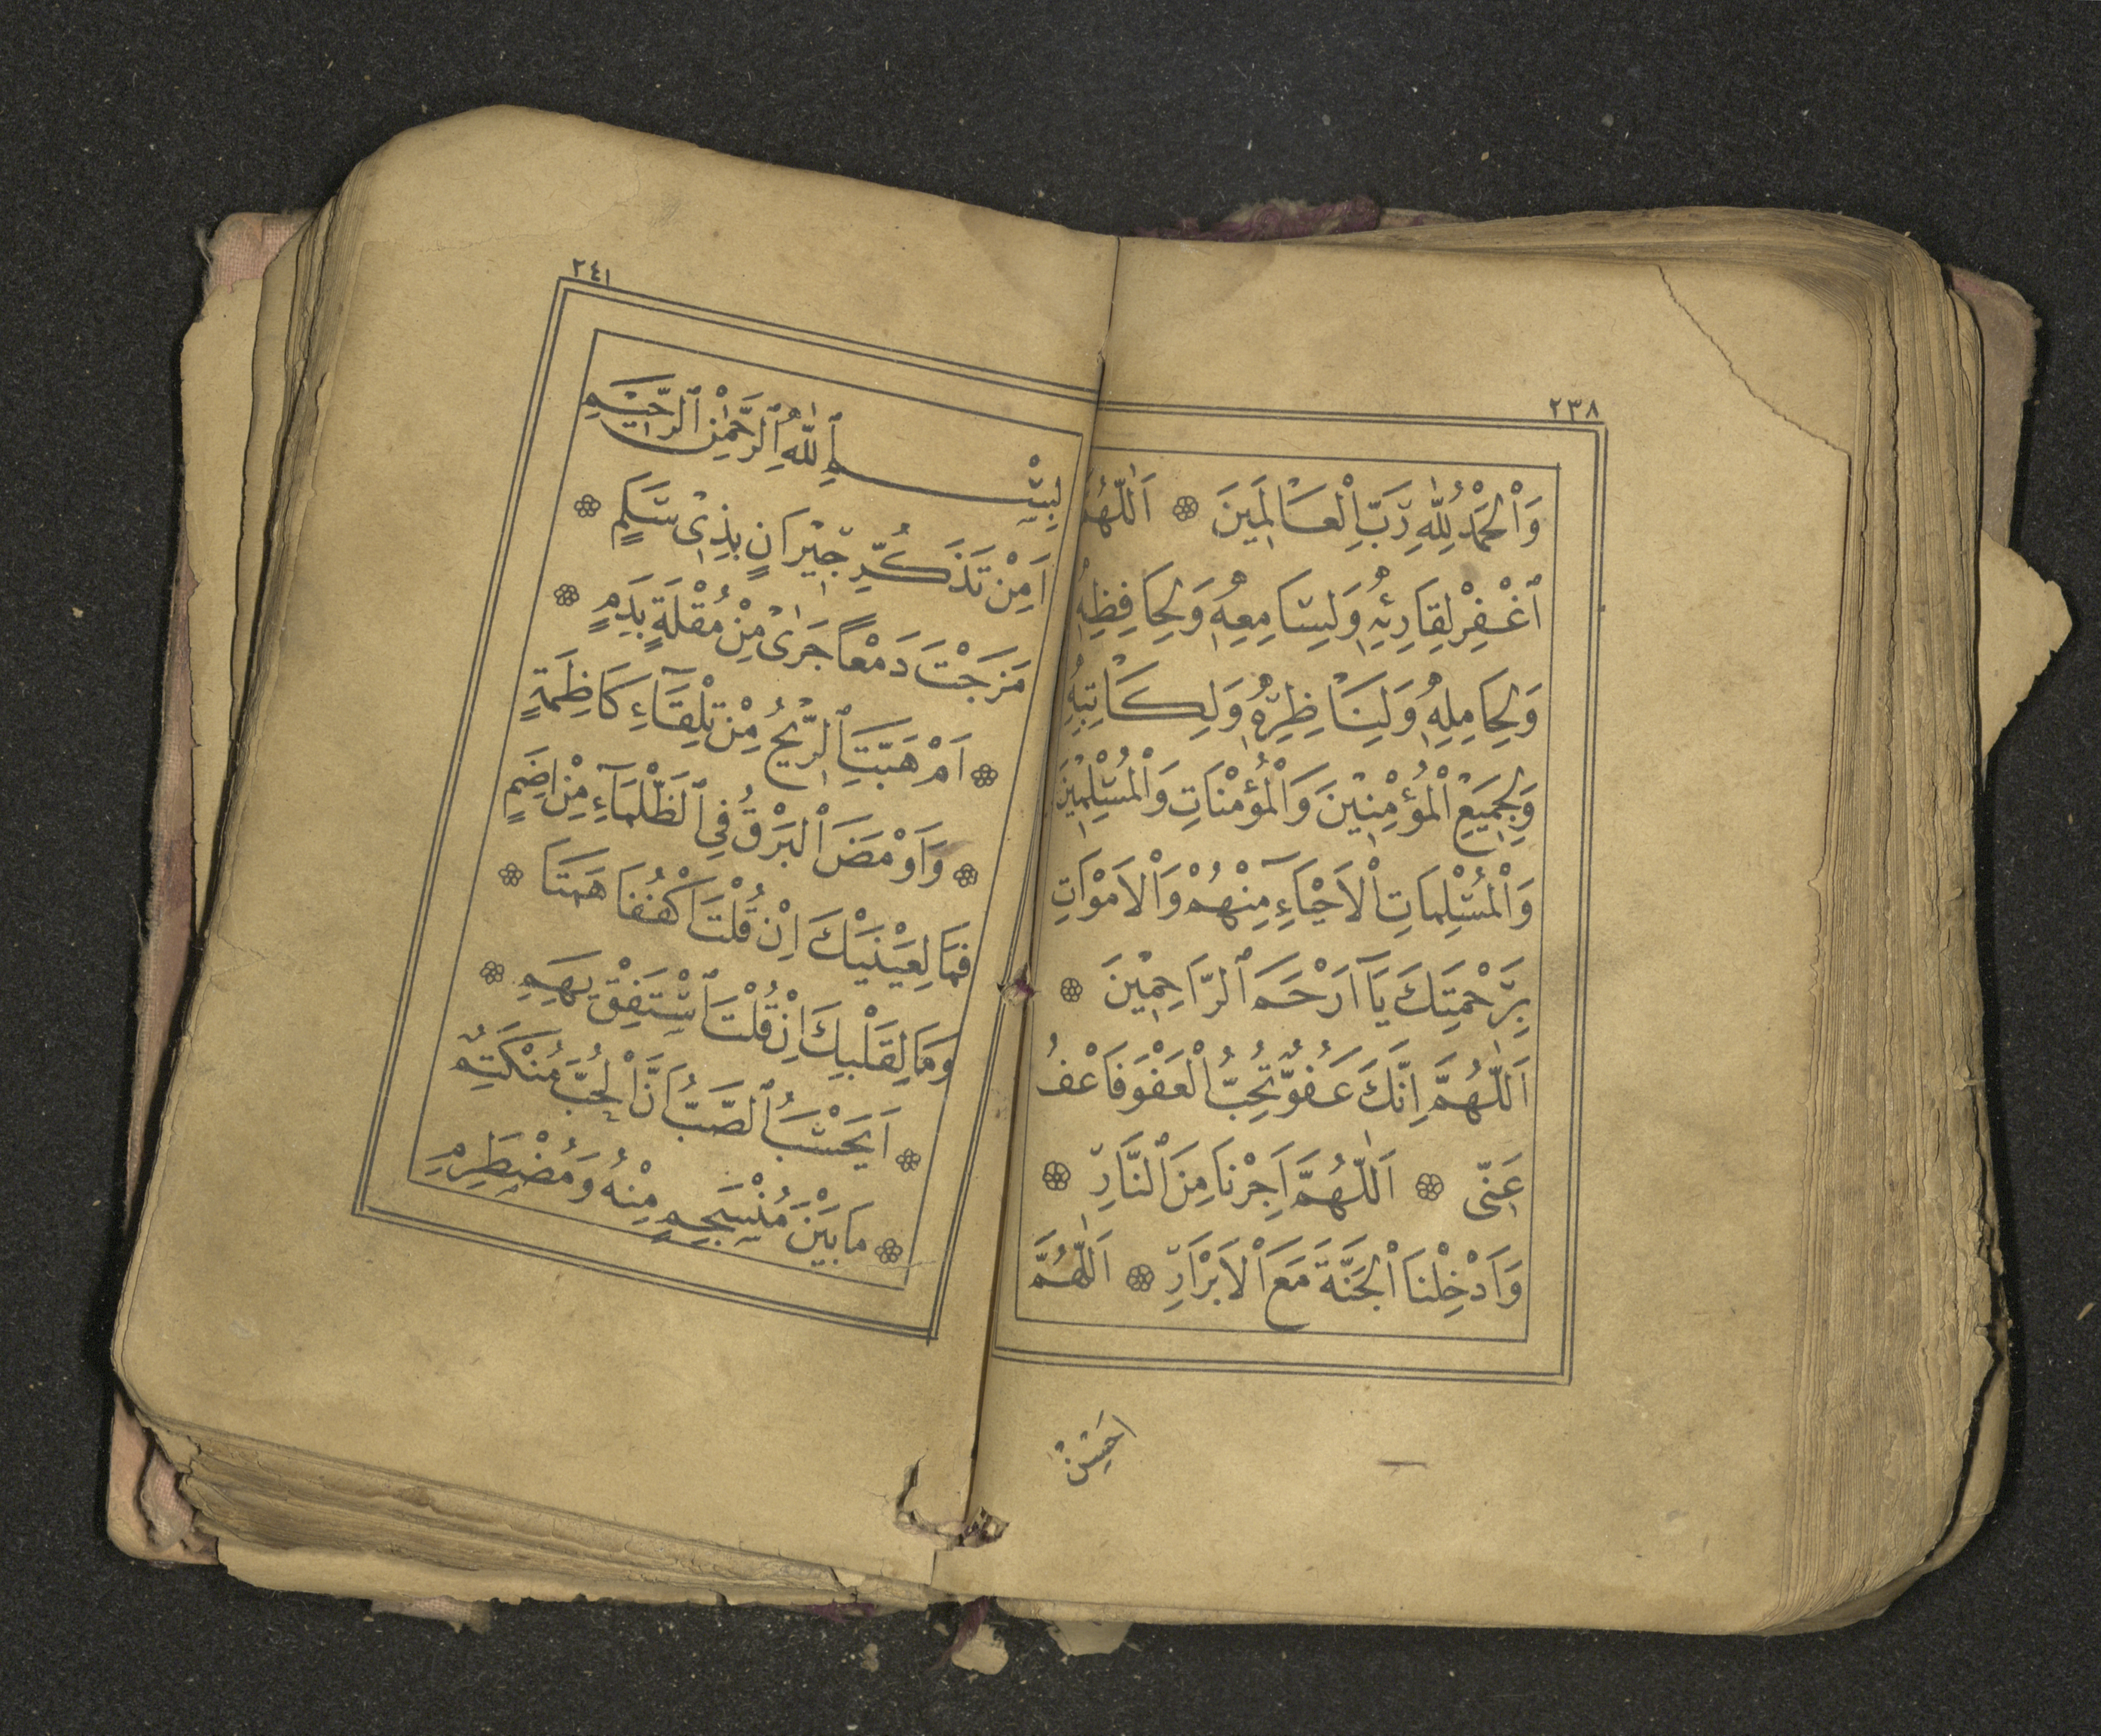 ٢٣٨
وَاْلحَمْدُ لِلّٰهِ رَبِّ اْلعَالَمِينَ ۞ اَللّٰهُمَّ
ٱغْفِرْ لِقَارِئِهِ وَلِسَامِعِهِ وَلِحَافِظِهِ
وَلِحَامِلِهِ وَلِنَاظِرِهِ وَلِكَاتِبِهِ
وَلِجَمِيعِ اْلمُؤْمِنِيْنَ وَاْلمُؤْمِنَاتِ وَاْلمُسْلِمِيْنَ
وَاْلمُسْلِمَاتِ اْلاَحْيَآءِ مِنْهُمْ وَاْلاَمْوَاتِ
بِرَحْمَتِكَ يَآ اَرْحَمَ ٱلرَّاحِمِيْنَ ۞
اَللّٰهُمَّ اِنَّكَ عَفُوٌّ تُحِبُّ اْلعَفْوَ فَاعْفُ
عَنِّى ۞ اَللّٰهُمَّ اَجِرْنَا مِنَ اْلنَّارِ ۞
وَاَدْخِلْنَا اْلجَنَّةَ مَعَ اْلاَبْرَارِ ۞ اَللّٰهُمَّ
٢٤١
بِسْمِ ٱللّٰهِ ٱلرَّحْمٰنِ ٱلرَّحِيْمِ
اَمِنْ تَذَكُّرِ جِيْرَانٍ بِذِىْ سَلَمٍ ۞
مَزَجْتَ دَمْعًا جَرٰى مِنْ مُقْلَةٍ بِدَمٍ ۞
۞ اَمْ هَبَّتِ ٱلرِّيْحُ مِنْ تِلْقَآءِ كَاظِمَةٍ
۞ وَاَوْمَضَ ٱلبَرْقُ فِى ٱلظَّلْمَآءِ مِنْ اِضَمٍ
فَمَا لِعَيْنَيْكَ اِنْ قُلْتَ اكْفُفَا هَمَتَا ۞
وَمَا لِقَلْبِكَ اِنْ قُلْتَ ٱسْتَفِقْ يَهِمِ ۞
۞ اَيَحْسَبُ ٱلصَّبُّ اَنَّ اْلحُبَّ مُنْكَتِمٌ
۞ مَا بَيْنَ مُنْسَجِمٍ مِنْهُ وَمُضْطَرِمِ